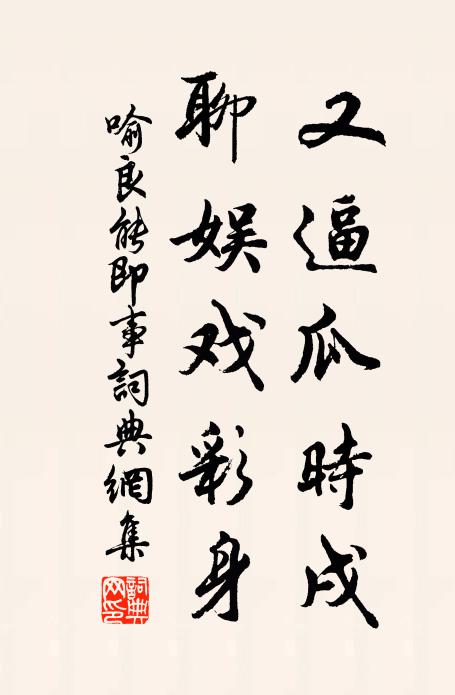 又逼瓜時戍
聊娱戏彩身
喻良能即事詞典網集
詞典网印